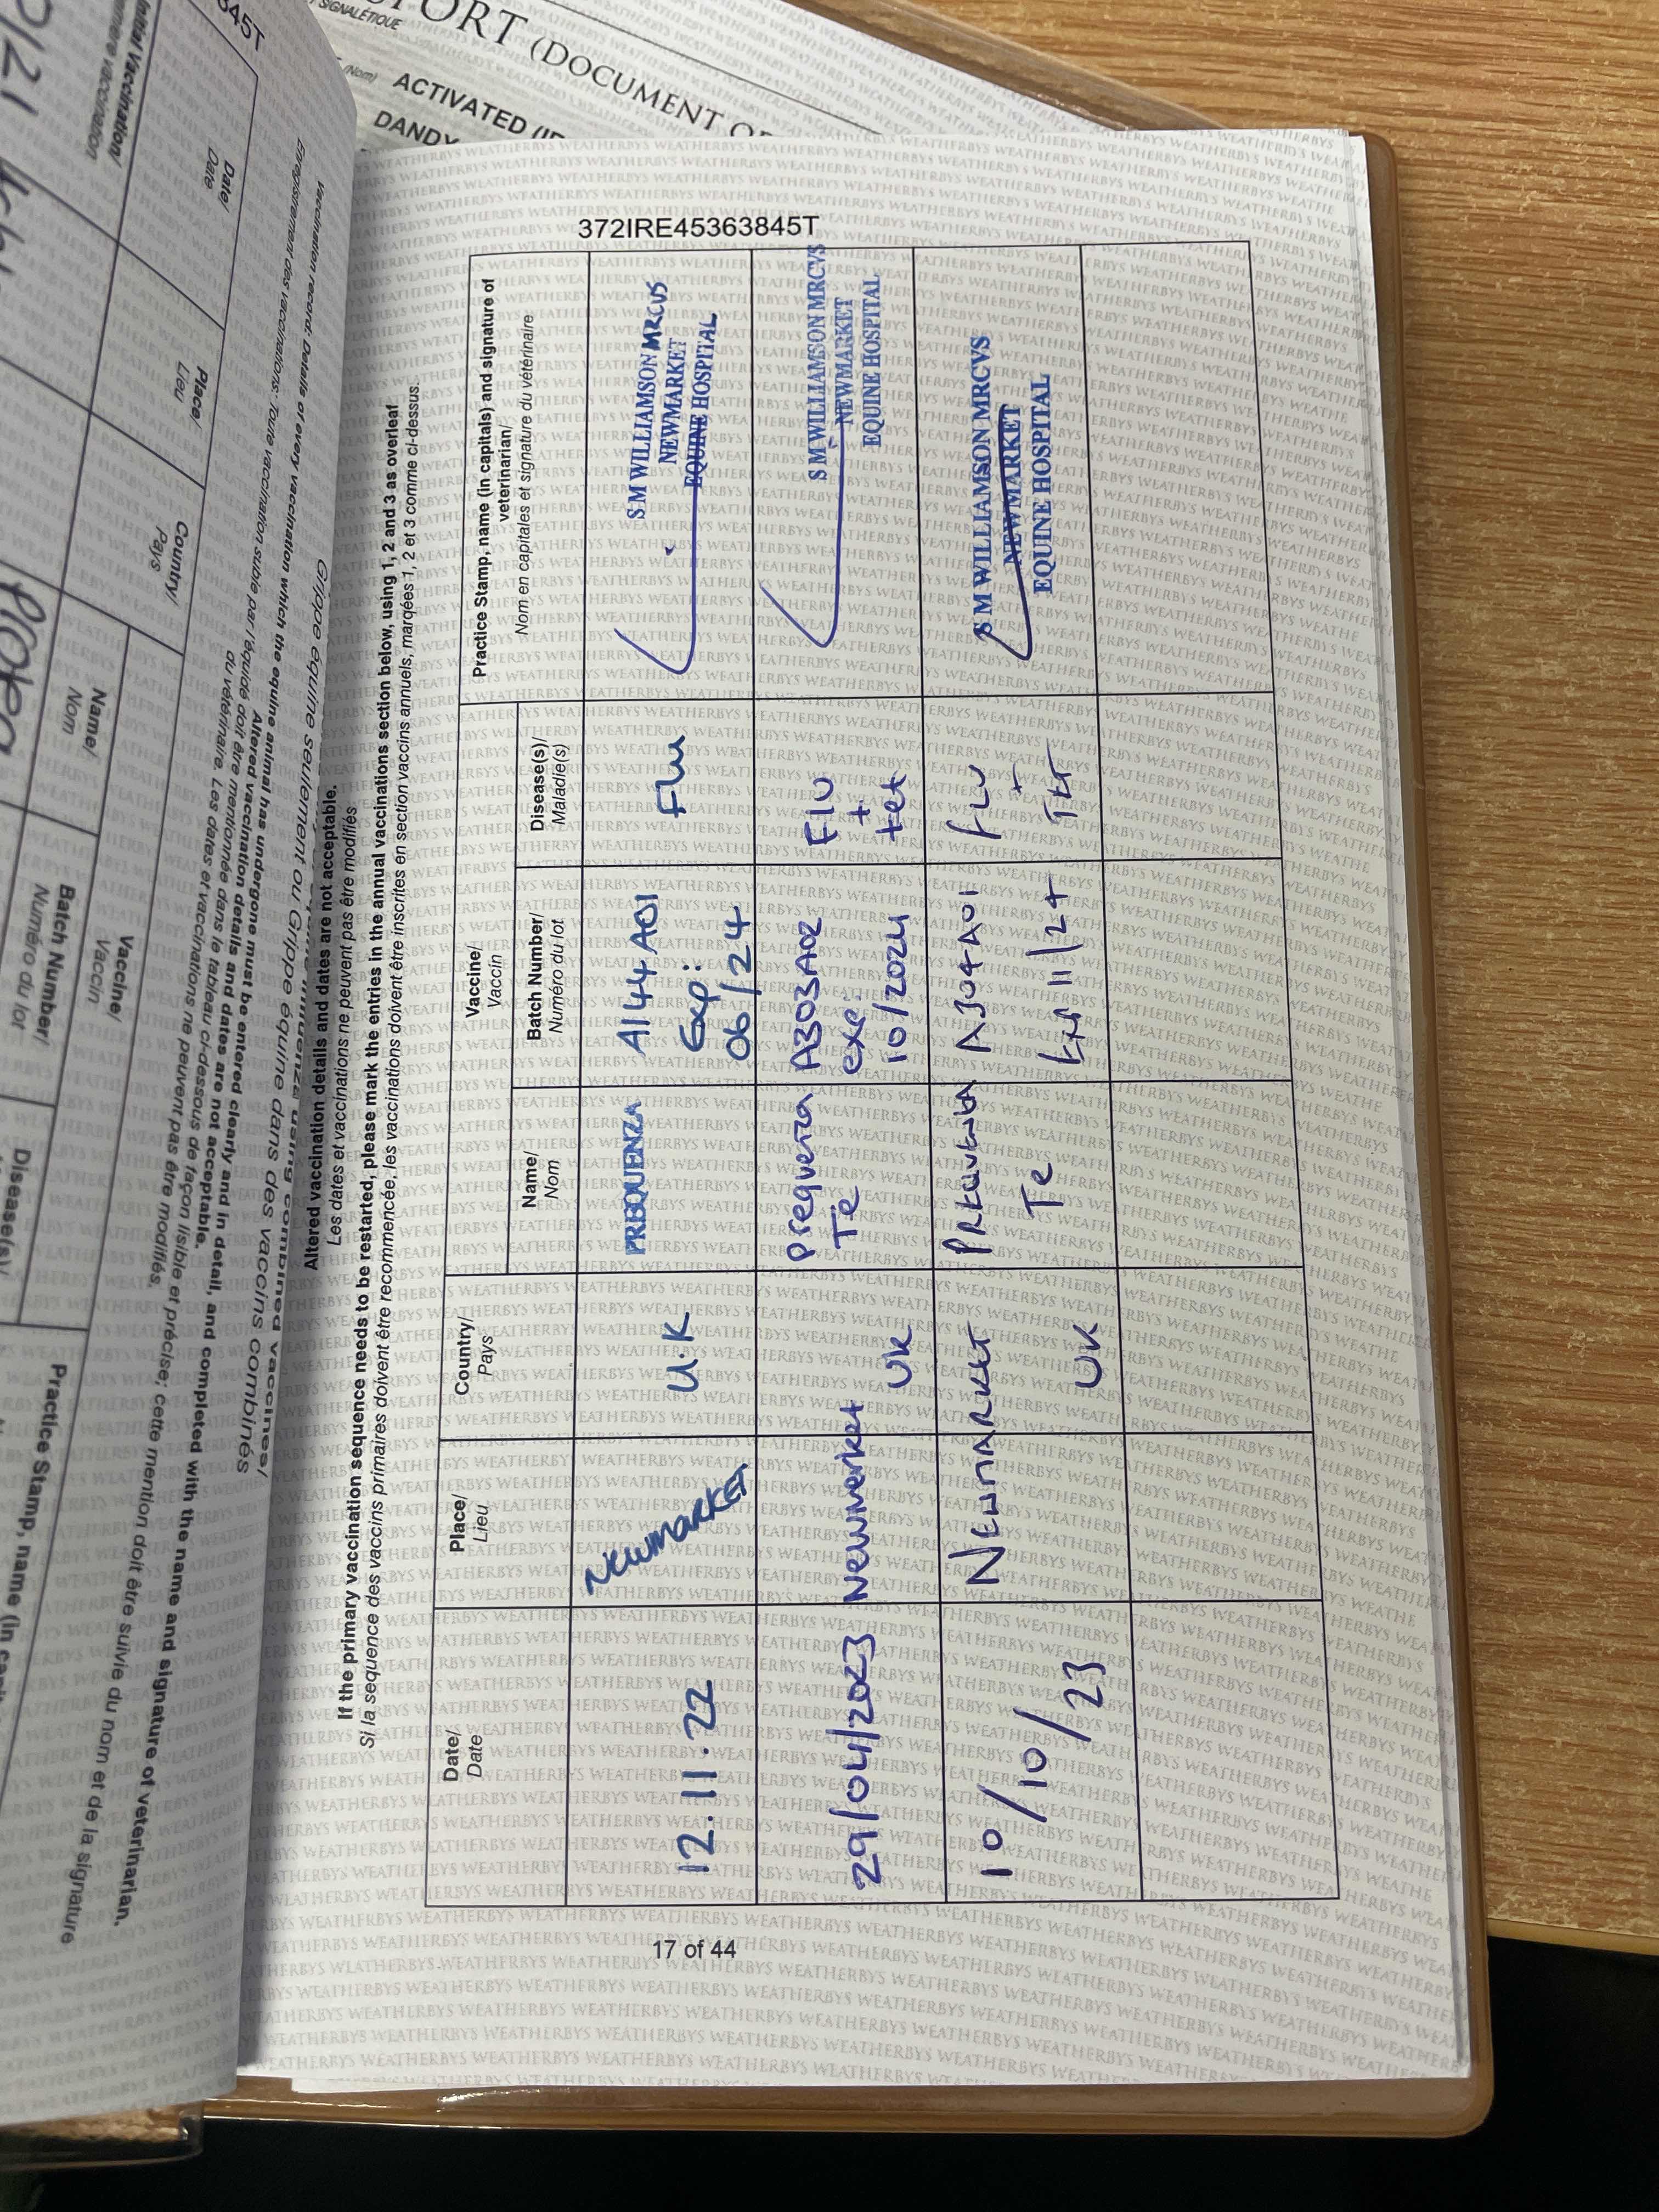 PORT (DOCUMENT
SIGNALÉTIQUE
(Nom) ACTIVATED
DANDY
845T
Date/
Date
Place/
Lieu
Country/
Pays
Vaccine/
Vaccin
Name/
Nom
Batch Number/
Numéro du lot
Disease(s)/
Practice Stamp, name (in
vaccination record: Details of every vaccination which the equine animal has undergone must be entered clearly and in detail, and completed with the name and signature of veterinarian.
Altered vaccination details and dates are not acceptable.
Enregistrement des vaccinations: Toute vaccination subie par l'équidé doit être mentionnée dans le tableau ci-dessous de façon lisible et précise; cette mention doit être suivie du nom et de la signature
du vétérinaire. Les dates et vaccinations ne peuvent pas être modifiés.
Grippe équine seulement ou Grippe équine dans des vaccins combinés
Altered vaccination details and dates are not acceptable.
Les dates et vaccinations ne peuvent pas être modifiés
If the primary vaccination sequence needs to be restarted, please mark the entries in the annual vaccinations section below, using 1, 2 and 3 as overleaf
Si la sequence des vaccins primaires doivent être recommencée, les vaccinations doivent être inscrites en section vaccins annuels, marquées 1, 2 et 3 comme ci-dessus.
Date/
Date
Place/
Lieu
Country/
Pays
Vaccine/
Vaccin
Name/
Nom
Batch Number/
Numéro du lot
Disease(s)/
Maladie(s)
Practice Stamp, name (in capitals) and signature of
veterinarian/
Nom en capitales et signature du vétérinaire
12.11.22
NEWMARKET
U.K
PREQUENZA
A144A01
Exp:
06/24
Flu
S M WILLIAMSON MRCVS
NEWMARKET
EQUINE HOSPITAL
29/04/2023
Newmarket
UK
Prequenza
Te
A303A02
exp:
10/2024
Flu
+
tet
S M WILLIAMSON MRCVS
NEWMARKET
EQUINE HOSPITAL
10/10/23
NEWMARKET
UK
Te
A304A01
11/24
FLU
+
TET
S M WILLIAMSON MRCVS
NEWMARKET
EQUINE HOSPITAL
372IRE45363845T
17 of 44